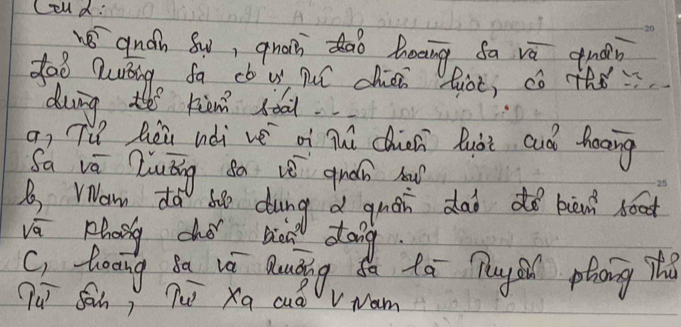 Câu 2:
về quân sự, quần đảo hoàng sa và quần
đảo trường sa có vị trí chiến lược, có thể ....
dụng để kiểm soát ....
a, Tư liệu nói về vị trí chiến lược của hoàng
sa và trường sa về quân sự
b, VNam đã sử dụng 2 quần đảo để kiểm soát
và phòng thủ biển
c, hoàng sa và trường sa là tuyến phòng thủ
từ sớm, từ xa của VNam